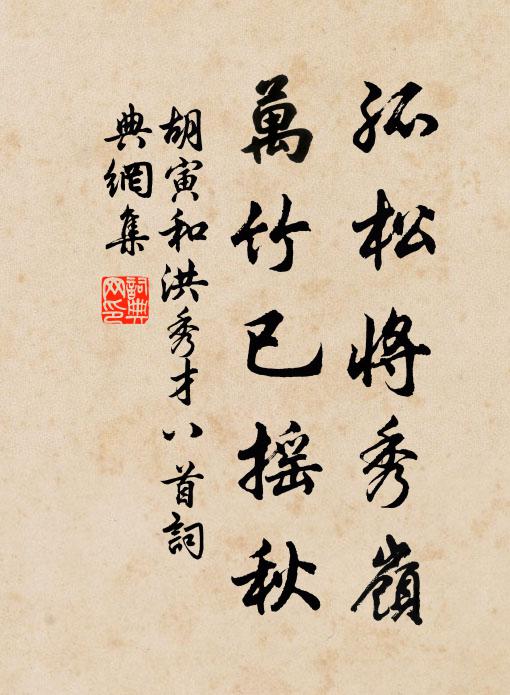 孤松將秀嶺
萬竹已摇秋
胡寅和洪秀才八首詞
典網集
詞典网印